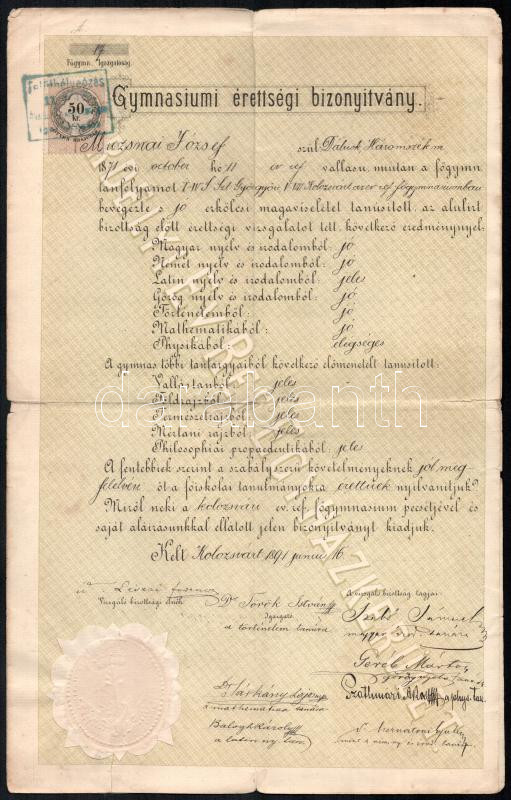 17
Főgymn. Igazgatóság.
Felülbélyegzés
50
kr.
Gymnasiumi érettségi bizonyitvány.
Muzsnai József szül. Dálnok Háromszék m.
1871 évi october hó 11 ev. ref. vallásu miután a főgymn.
tanfolyamot I-IV S. Szt Györgyön V-VIII Kolozsvárt az ev. ref. főgymnasiumban
bevégezte s jó erkölcsi magaviseletet tanúsitott, az alulirt
bizottság előtt érettségi vizsgálatot tett, következő eredménynyel:
Magyar nyelv és irodalomból: jó
Német nyelv és irodalomból: jó
Latin nyelv és irodalomból: jeles
Görög nyelv és irodalomból: jó
Történelemből: jó
Mathematikából: jó
Physikából: elégséges
A gymnas. többi tantárgyaiból következő előmenetelt tanusitott:
Vallástanból: jeles
Földrajzból: jeles
Természetrajzból: jeles
Mértani rajzból: jeles
Philosophiai propaedeutikából: jeles
A fentebbiek szerint a szabályszerű követelményeknek jól meg-
felelvén őt a főiskolai tanulmányokra érettnek nyilvánitjuk.
Miről neki a kolozsvári ev. ref. főgymnasium pecsétjével és
saját aláirásunkkal ellátott jelen bizonyitványt kiadjuk.
Kelt Kolozsvárt 1891 junius 16.
A vizsgáló bizottság tagjai:
Vizsgáló bizottsági elnök
Dr Török István
Igazgató
a történelem tanára
Szabó Sámuel
magyar irod. tanára
Gereb Márton
görög nyelv tanára
Dr Sárkány Lajos
a mathematica tanára
a phys. tan.
Balogh Károly
a latin ny. tan.
darabanth